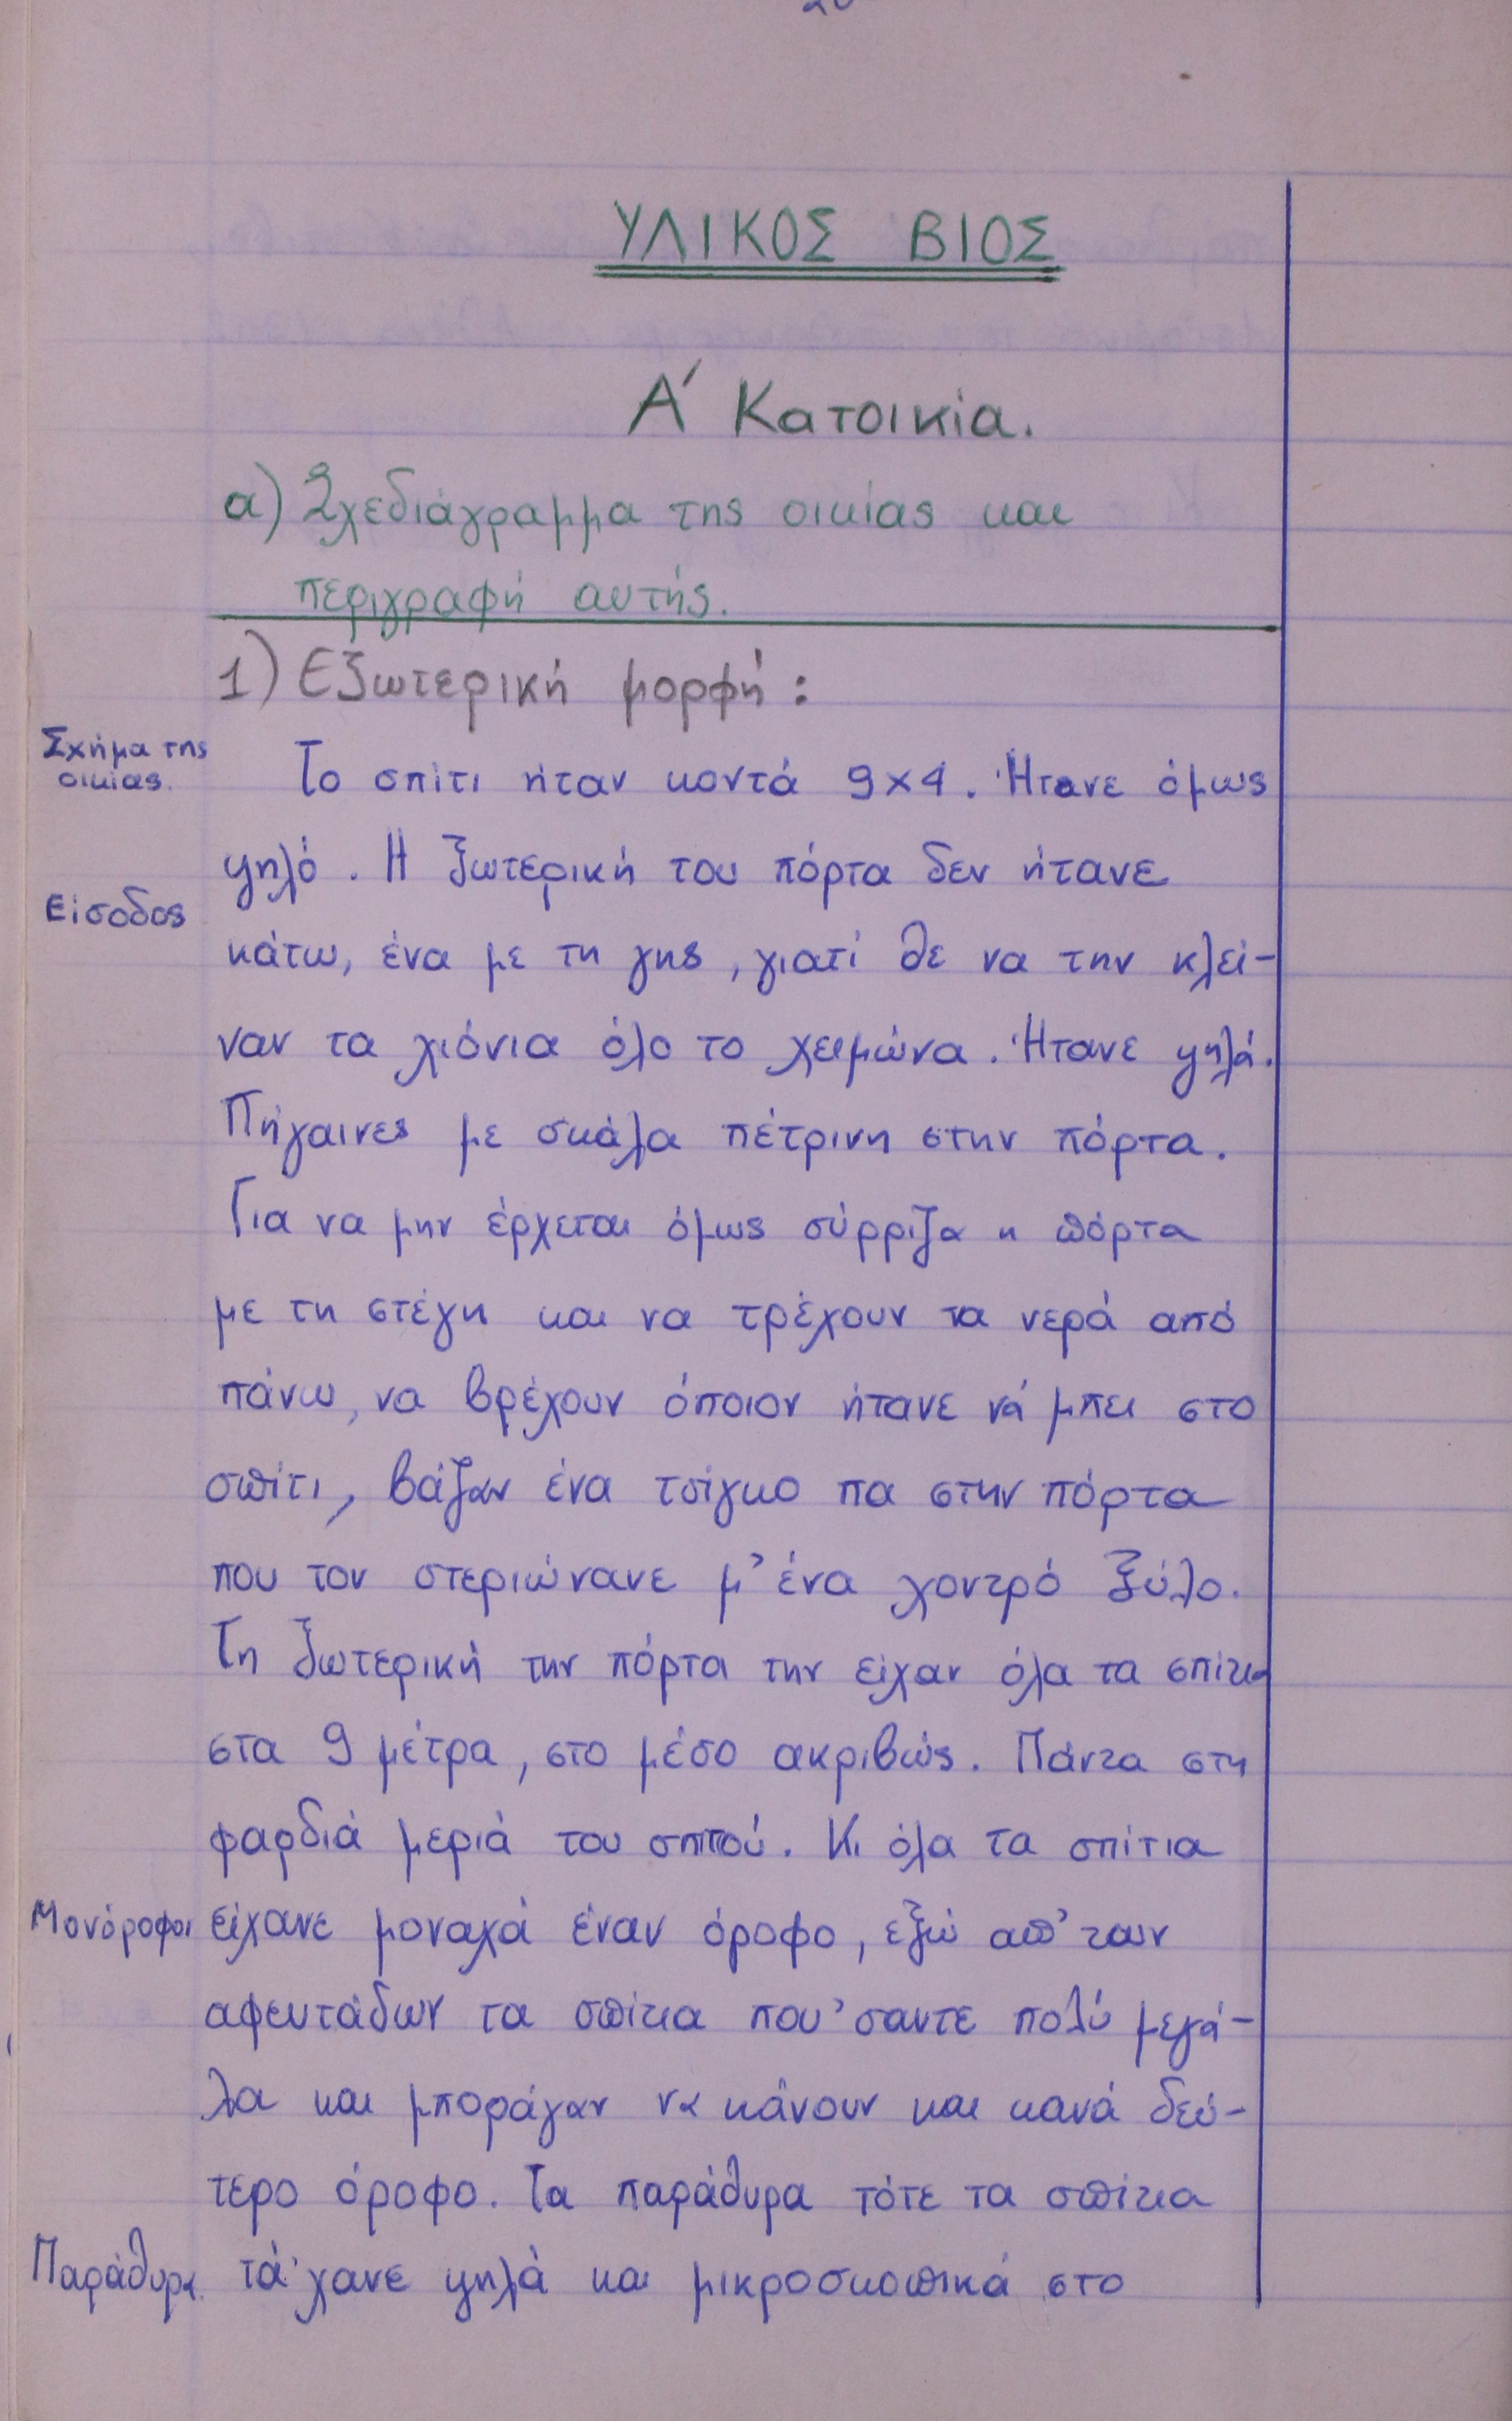 ΥΛΙΚΟΣ ΒΙΟΣ
Α' Κατοικία.
α) Σχεδιάγραμμα της οικίας και
περιγραφή αυτής.
1) Εξωτερική μορφή:
Σχήμα της
οικίας.
Το σπίτι ήταν κοντά 9x4. Ήτανε όμως
ψηλό. Η ξωτερική του πόρτα δεν ήτανε
Είσοδος
κάτω, ένα με τη γης, γιατί θε να την κλεί-
ναν τα χιόνια όλο το χειμώνα. Ήτανε ψηλά.
Πήγαινες με σκάλα πέτρινη στην πόρτα.
Για να μην έρχεται όμως σύρριζα η πόρτα
με τη στέγη και να τρέχουν τα νερά από
πάνω, να βρέχουν όποιον ήτανε νά μπει στο
σπίτι, βάζαν ένα τσίγκο πα στην πόρτα
που τον στεριώνανε μ' ένα χοντρό ξύλο.
Τη ξωτερική την πόρτα την είχαν όλα τα σπίτια
στα 9 μέτρα, στο μέσο ακριβώς. Πάντα στη
φαρδιά μεριά του σπιτού. Κι όλα τα σπίτια
Μονόροφοι
είχανε μοναχά έναν όροφο, εξώ απ' των
αφεντάδων τα σπίτια που 'σαντε πολύ μεγά-
λα και μποράγαν να κάνουν και κανά δεύ-
τερο όροφο. Τα παράθυρα τότε τα σπίτια
Παράθυρα.
τά 'χανε ψηλά και μικροσκοπικά στο